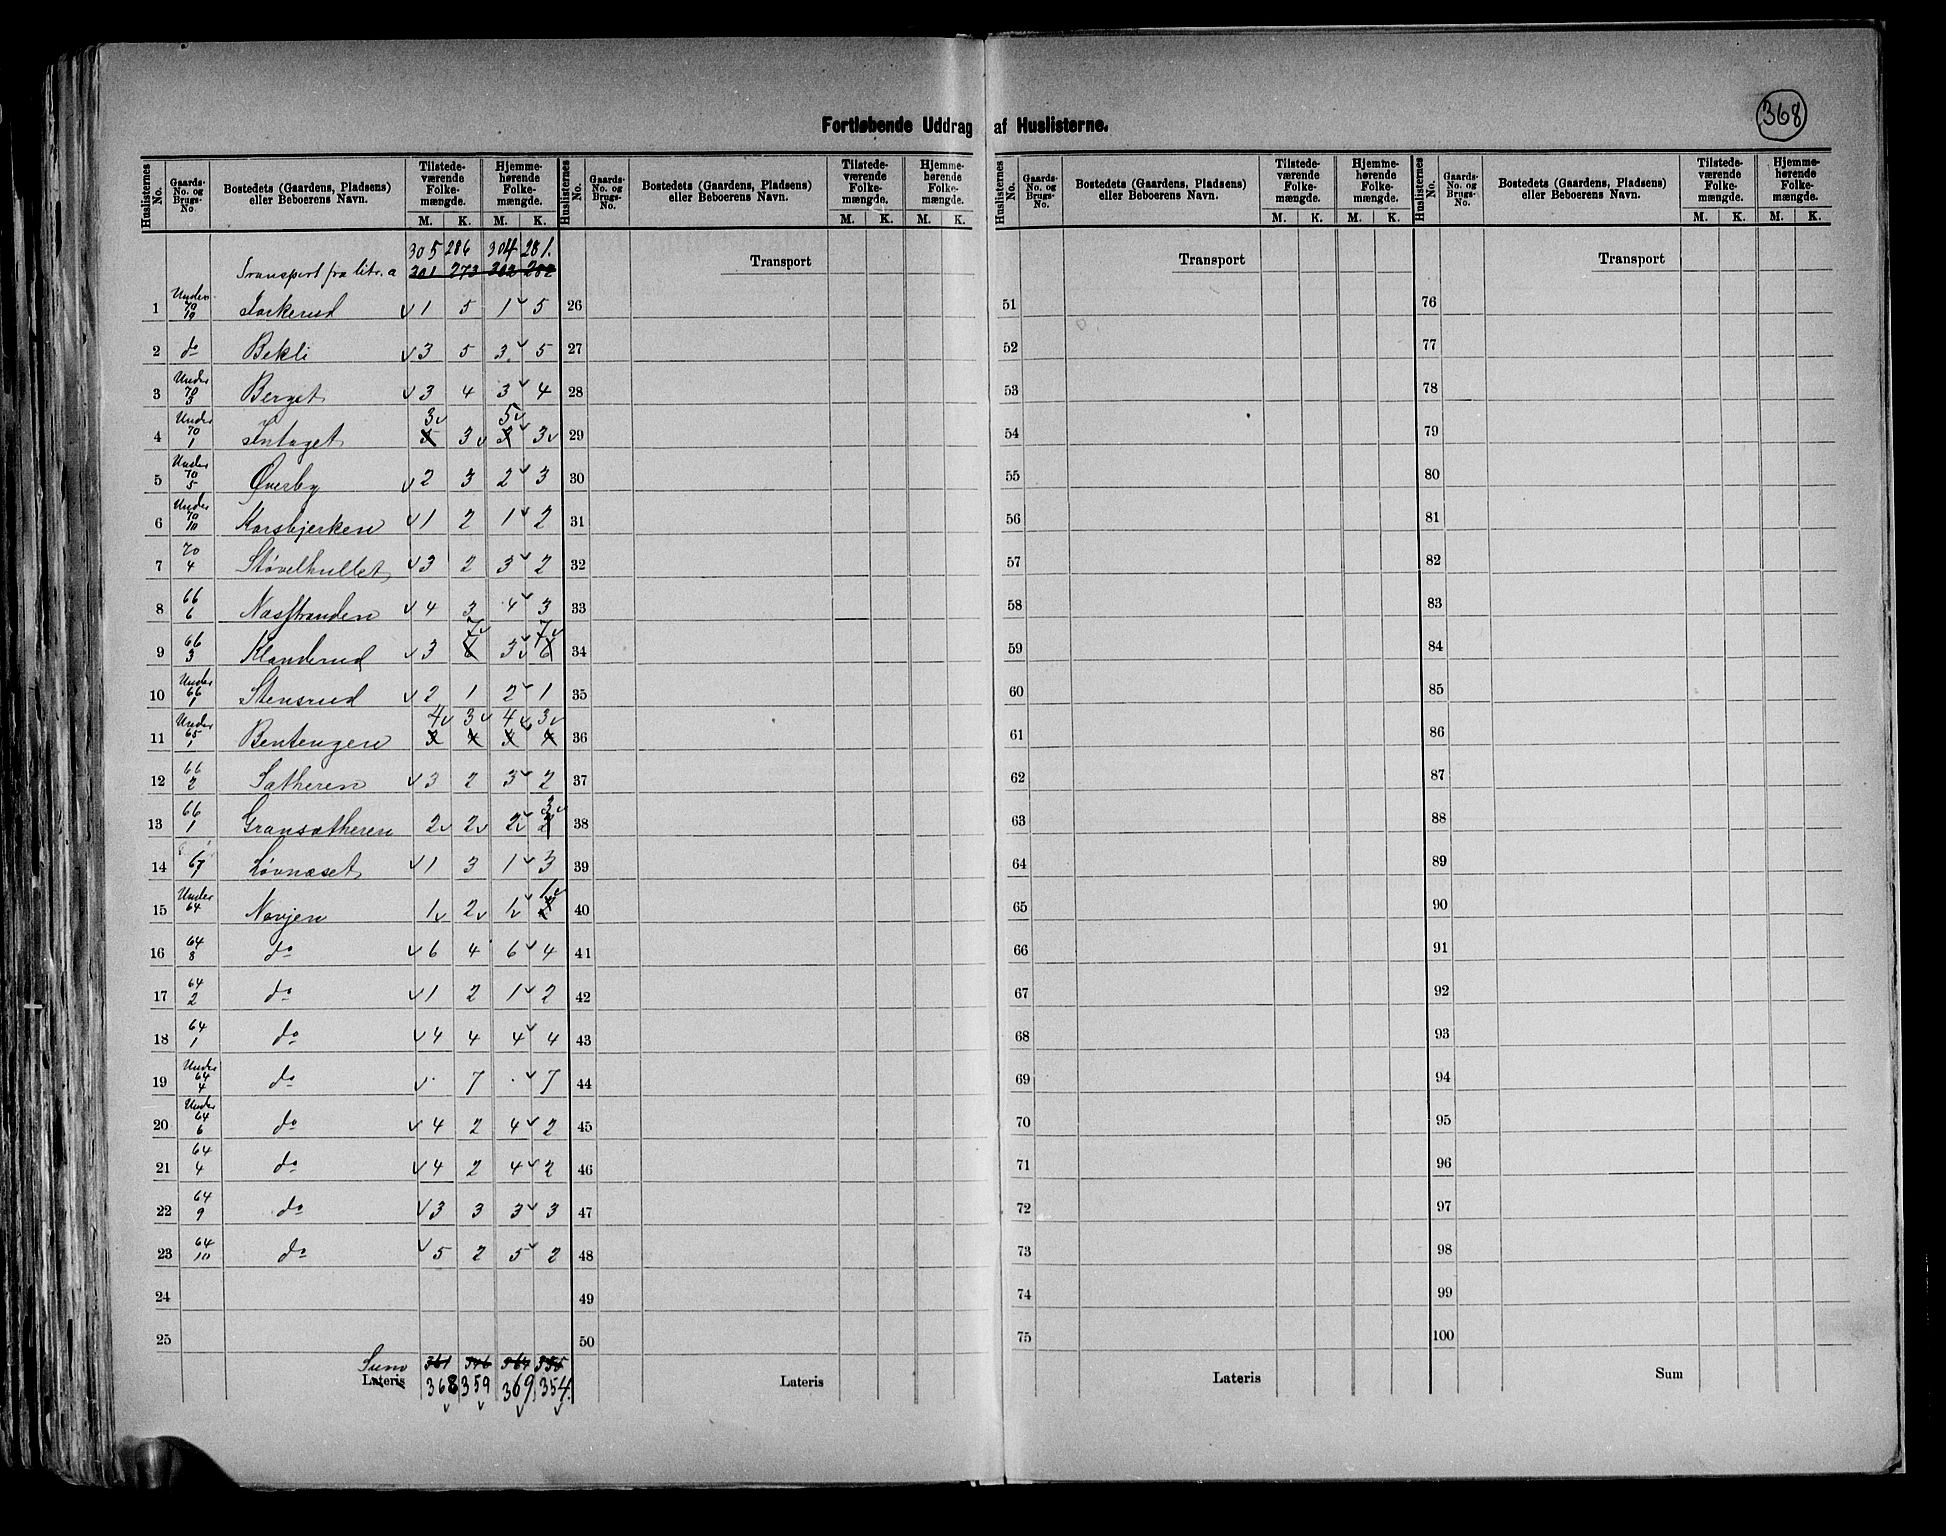 368
Fortløbende Uddrag af Huslisterne.
Huslisternes No. | Gaards-No. og Brugs-No. | Bostedets (Gaardens, Pladsens) eller Beboerens Navn. | Tilstedeværende Folkemængde. M. K. | Hjemmehørende Folkemængde. M. K.
305 286 304 281.
Transport fra litr. a 301 273 302 282
1 Under 70/19 Torkerud 1 5 1 5
2 do Bekli 3 5 3 5
3 Under 70/3 Berget 3 4 3 4
3 5
4 Under 70/1 Intaget 3 3
5 Under 70/5 Øverby 2 3 2 3
6 Under 70/10 Korsbjerken 1 2 1 2
7 70/4 Støvelhullet 3 2 3 2
8 66/6 Næsstranden 4 3 4 3
7 7
9 66/3 Klanderud 3 6 3 6
10 Under 66/1 Stensrud 2 1 2 1
4 3 4 3
11 Under 65/1 Bentengen 3 4 3 4
12 66/2 Sætheren 3 2 3 2
3
13 66/1 Gransætheren 2 2 2 2
14 67/1 Løvnæset 1 3 1 3
1
15 Under 64 Navjen 1 2 1
16 64/8 do 6 4 6 4
17 64/2 do 1 2 1 2
18 64/1 do 4 4 4 4
19 Under 64/4 do . 7 . 7
20 Under 64/6 do 4 2 4 2
21 64/4 do 4 2 4 2
22 64/9 do 3 3 3 3
23 64/10 do 5 2 5 2
24
25
Sum 361 346 364 355
Lateris 368 359 369 354.
Huslisternes No. | Gaards-No. og Brugs-No. | Bostedets (Gaardens, Pladsens) eller Beboerens Navn. | Tilstedeværende Folkemængde. M. K. | Hjemmehørende Folkemængde. M. K.
Transport
26
27
28
29
30
31
32
33
34
35
36
37
38
39
40
41
42
43
44
45
46
47
48
49
50
Lateris
Huslisternes No. | Gaards-No. og Brugs-No. | Bostedets (Gaardens, Pladsens) eller Beboerens Navn. | Tilstedeværende Folkemængde. M. K. | Hjemmehørende Folkemængde. M. K.
Transport
51
52
53
54
55
56
57
58
59
60
61
62
63
64
65
66
67
68
69
70
71
72
73
74
75
Lateris
Huslisternes No. | Gaards-No. og Brugs-No. | Bostedets (Gaardens, Pladsens) eller Beboerens Navn. | Tilstedeværende Folkemængde. M. K. | Hjemmehørende Folkemængde. M. K.
Transport
76
77
78
79
80
81
82
83
84
85
86
87
88
89
90
91
92
93
94
95
96
97
98
99
100
Sum